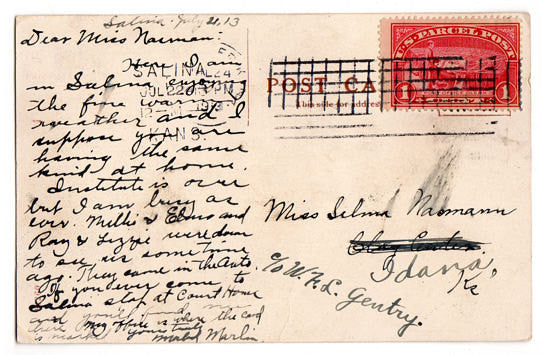 Salina. July 21, 13
Dear Miss Naomann:
Here I am
in Salina enjoying
the fine warm
weather and I
suppose you are
having the same
kind at home.
Institute is over
but I am busy as
ever. Millie & Elmo and
Ray & Lizzie were down
to see us some time
ago. They came in the Auto.
If you ever come to
Salina stop at Court House
and you'll find me
there. My office is where the cad
is marked yours truly
Merlin
SALINA
JUL 22
1913
KANS.
POST CA
This side for address
U.S. PARCEL POST
1 1
Miss Selma Naomann
Clay Center
Idana,
Ks
c/o W. F. L. Gentry.